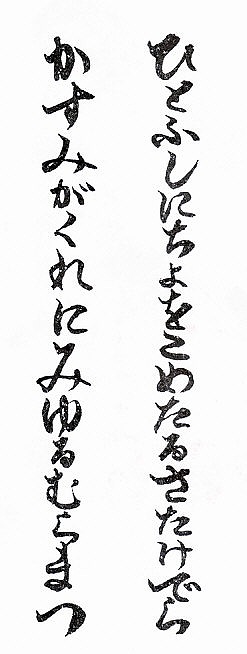 ひとふしにちよをこめたるさたけでら
かすみがくれにみゆるむらまつ